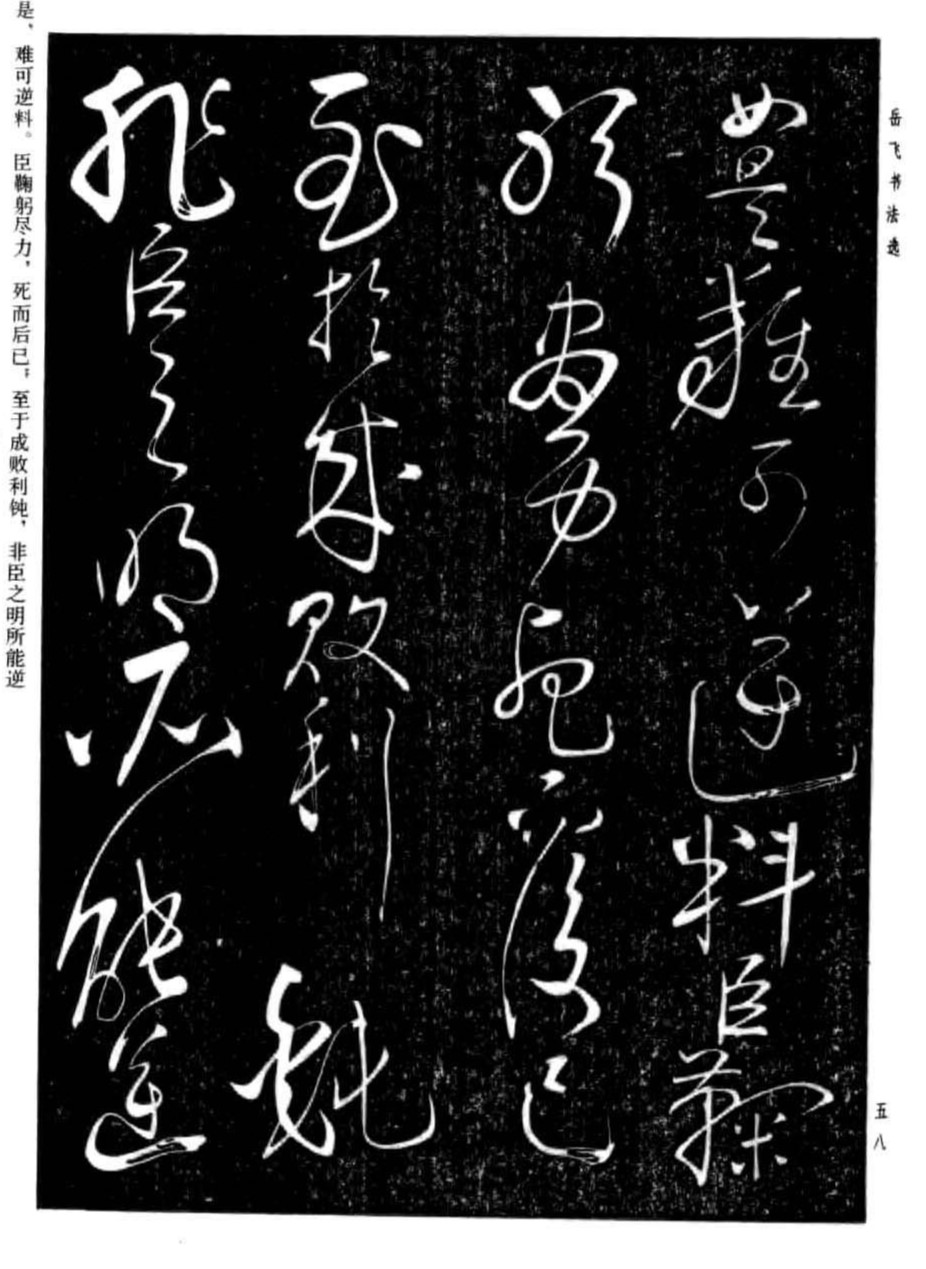 岳飞书法选
如是難可逆料臣鞠
躬盡力死而後已
至於成敗利鈍
非臣之明所能逆
是，难可逆料。臣鞠躬尽力，死而后已；至于成败利钝，非臣之明所能逆
五八